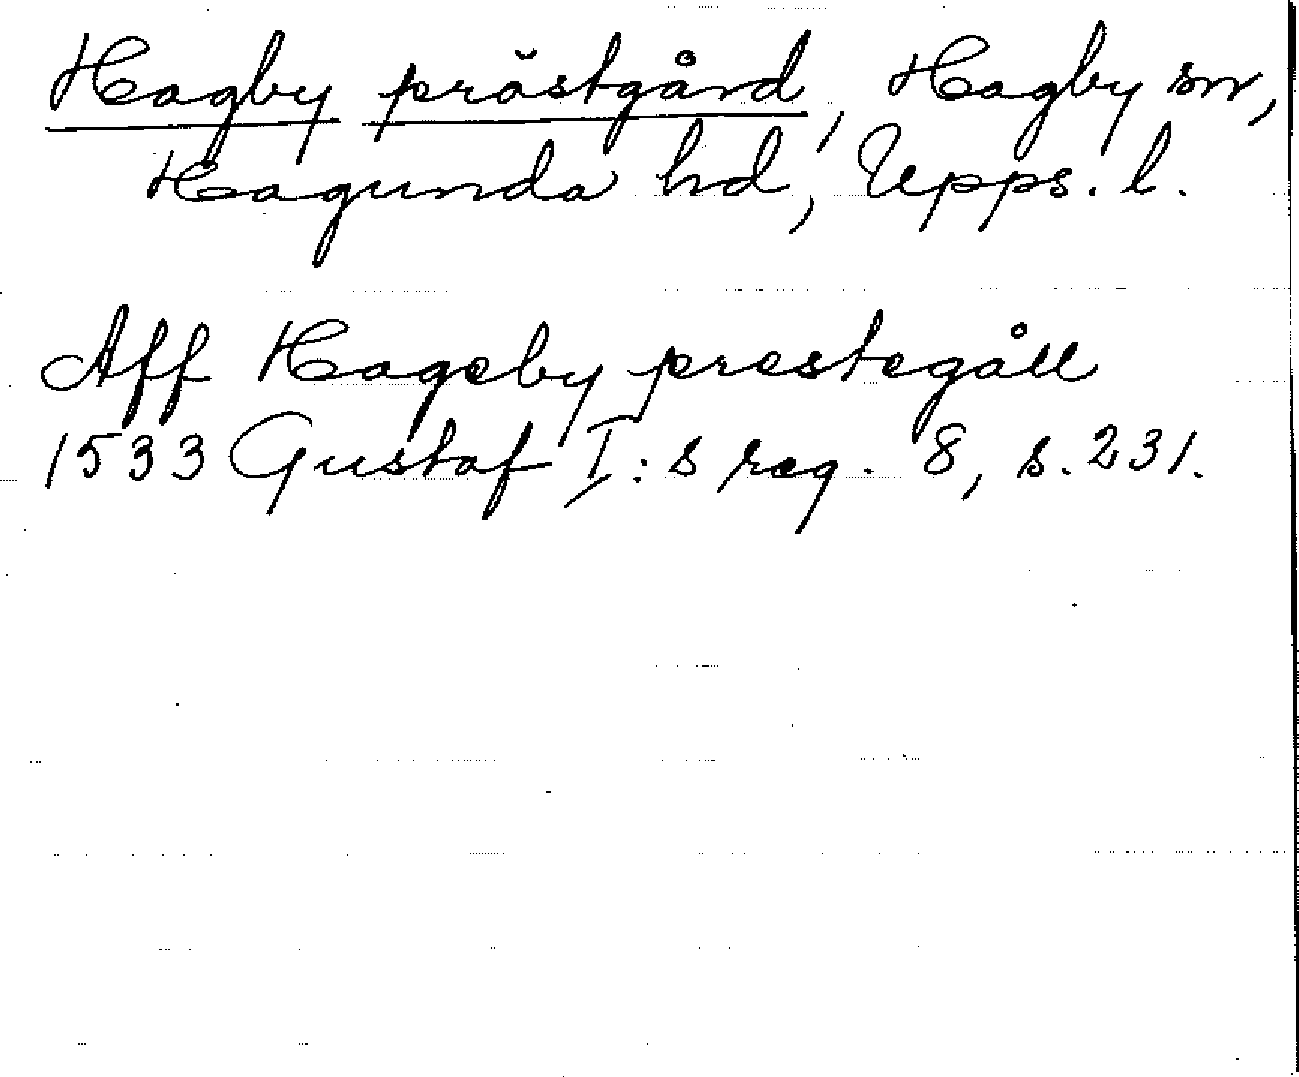 Hagby prästgård, Hagby sn,
Hagunda hd, Upps. l.
Aff Hageby prestegåll
1533 Gustaf I:s reg. 8, s. 231.